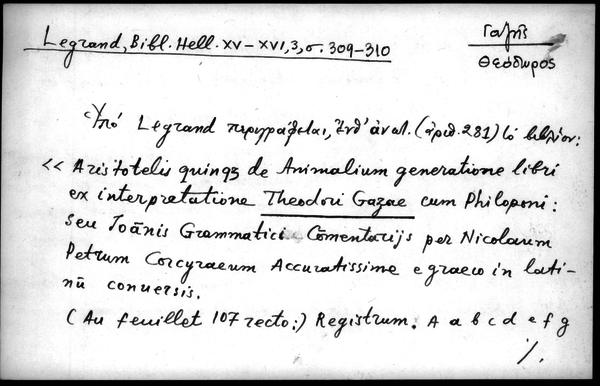 Legrand, Bibl. Hell. XV-XVI, 3, σ. 309-310
Γαζῆς
Θεόδωρος
Ὑπό Legrand περιγράφεται, ἔνθ' ἀνωτ. (ἀριθ. 281) τό βιβλίον:
<< Aristotelis quinqȝ de Animalium generatione libri
ex interpretatione Theodori Gazae cum Philoponi:
seu Joānis Grammatici Cōmentarijs per Nicolaum
Petrum Corcyraeum Accuratissime e graeco in lati-
nū conuersis.
(Au feuillet 107 recto:) Registrum. A a b c d e f g
./.